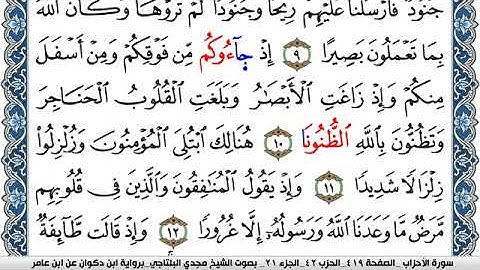 جُنُودٌ فَأَرْسَلْنَا عَلَيْهِمْ رِيحًا وَجُنُودًا لَّمْ تَرَوْهَا وَكَانَ ٱللَّهُ
بِمَا تَعْمَلُونَ بَصِيرًا ٩ إِذْ جَآءُوكُم مِّن فَوْقِكُمْ وَمِنْ أَسْفَلَ
مِنكُمْ وَإِذْ زَاغَتِ ٱلْأَبْصَٰرُ وَبَلَغَتِ ٱلْقُلُوبُ ٱلْحَنَاجِرَ
وَتَظُنُّونَ بِٱللَّهِ ٱلظُّنُونَا ١٠ هُنَالِكَ ٱبْتُلِيَ ٱلْمُؤْمِنُونَ وَزُلْزِلُوا۟
زِلْزَالًا شَدِيدًا ١١ وَإِذْ يَقُولُ ٱلْمُنَٰفِقُونَ وَٱلَّذِينَ فِي قُلُوبِهِم
مَّرَضٌ مَّا وَعَدَنَا ٱللَّهُ وَرَسُولُهُۥٓ إِلَّا غُرُورًا ١٢ وَإِذْ قَالَت طَّآئِفَةٌ
سورة الأحزاب_ الصفحة ٤١٩_ الحزب ٤٢_ الجزء ٢١_ بصوت الشيخ مجدي البلتاجي_ برواية ابن ذكوان عن ابن عامر